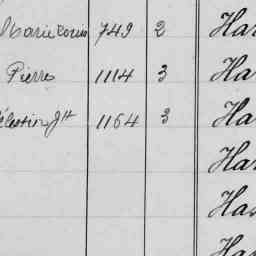 Marie Louis 749 2 Har
Pierre 1114 3 Ha
élestin Jh 1164 3 Ha
Har
Har
Har